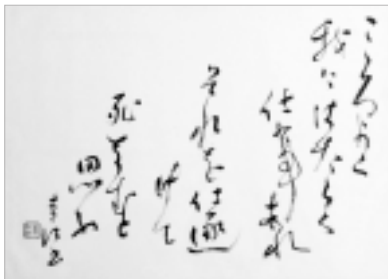 こころよく
我にはたらく
仕事あれ
それを仕遂
げて
死なむと
思ふ